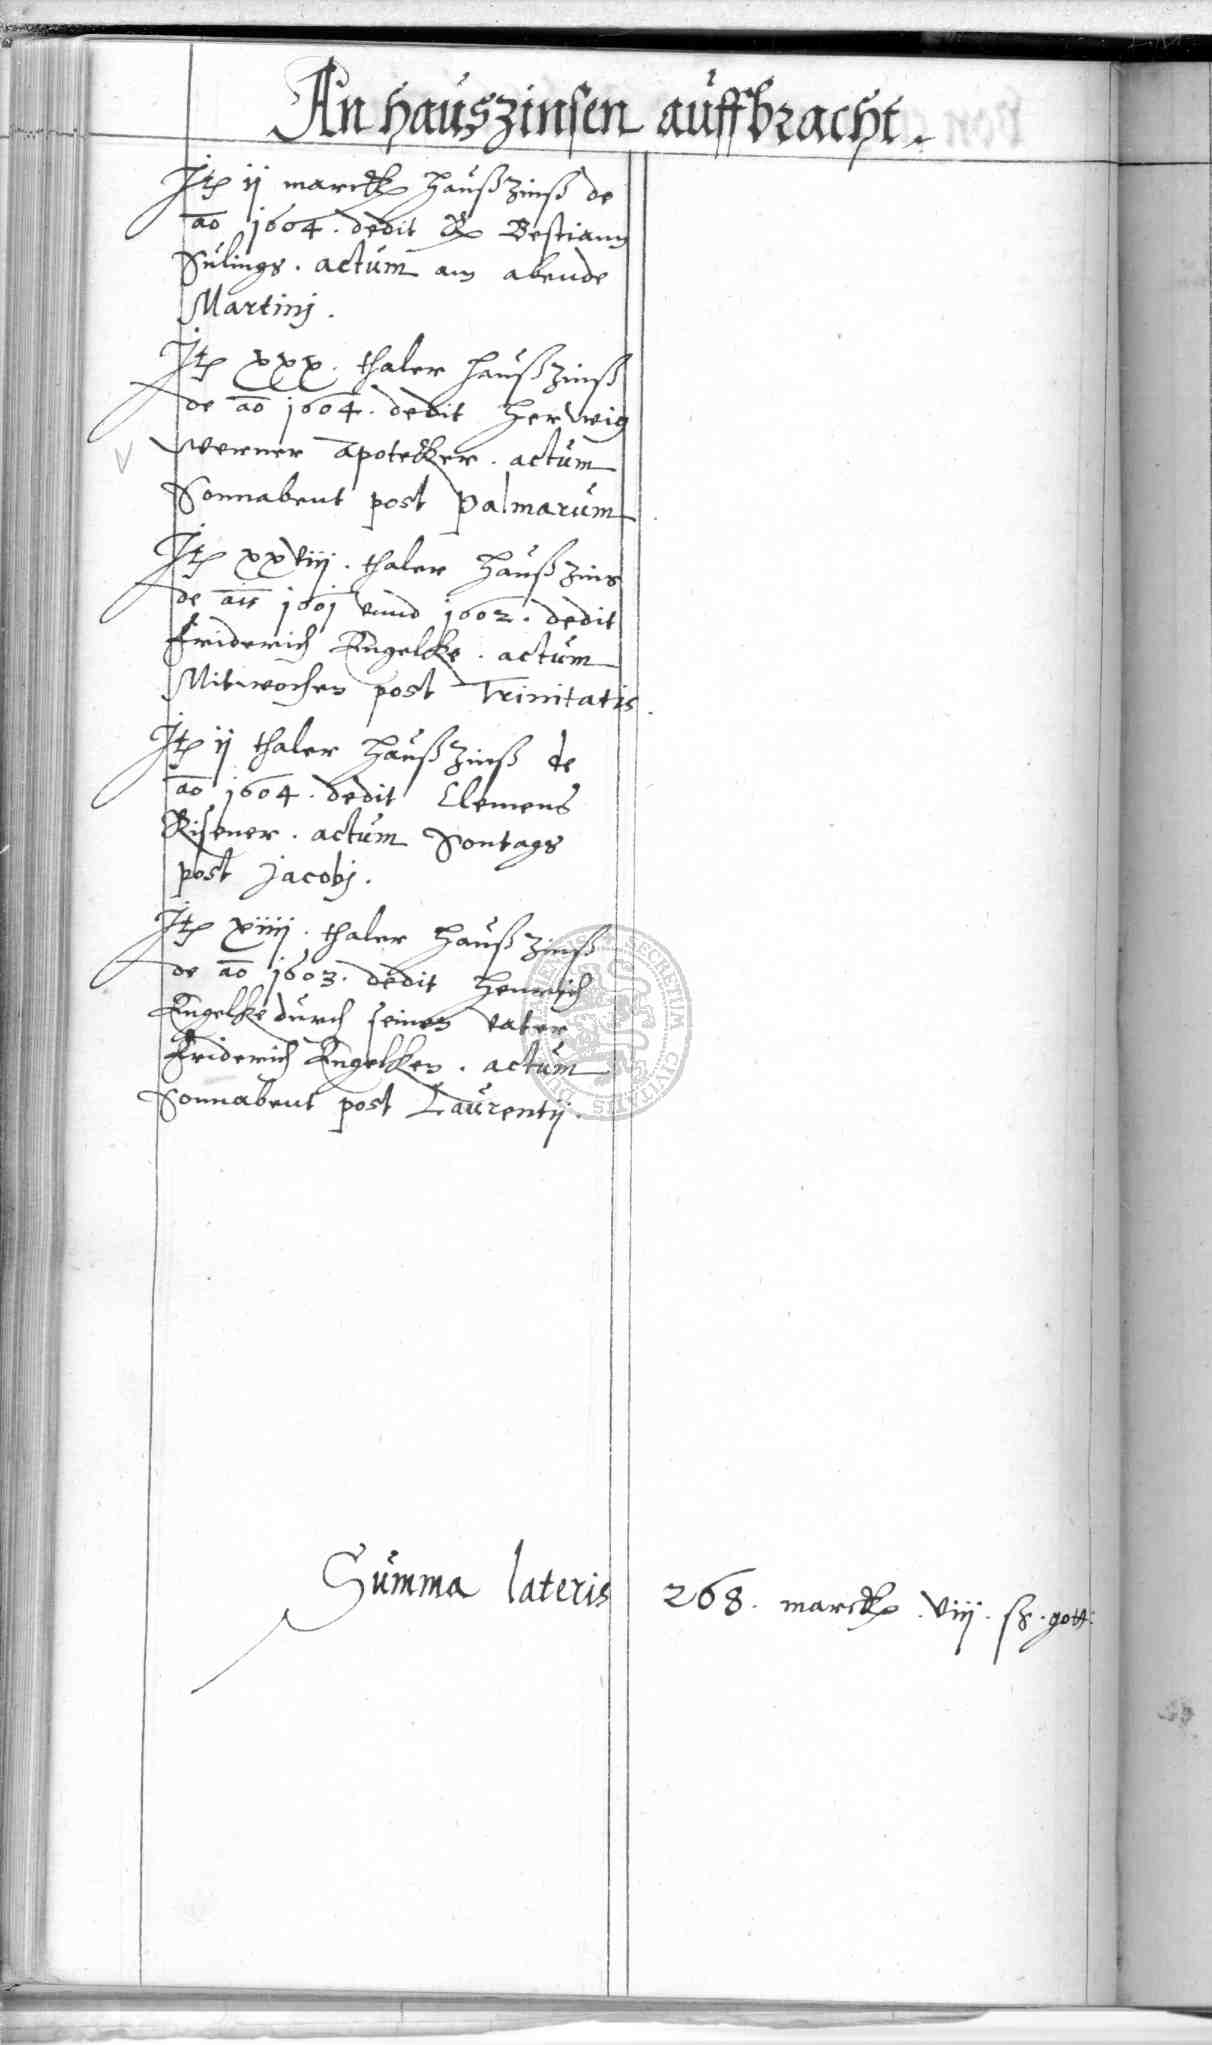 An hauszinsen auffbracht.
Jt ij marck haußzinß de
ao 1604. dedit Bestiann
Sülings. actum am abende
Martinj.
Jt xxx. thaler haußzinß
de ao 1604. dedit Herwig
Werner Apotecker. actum
Sonnabent post Palmarum.
Jt xxviij. thaler haußzins
de ais 1601 vnnd 1602. dedit
Friderich Engelke. actum
Mitwochen post Trinitatis.
Jt ij thaler haußzinß de
ao 1604. dedit Clemens
Risener. actum Sontags
post Jacobj.
Jt xiiij. thaler haußzinß
de ao 1603. dedit Henrich
Engelke durch seinen vater
Friderich Engelken. actum
Sonnabent post Laurentij.
SECRETUM CIVITATIS
Summa lateris 268. marck. viij. ß. gott: